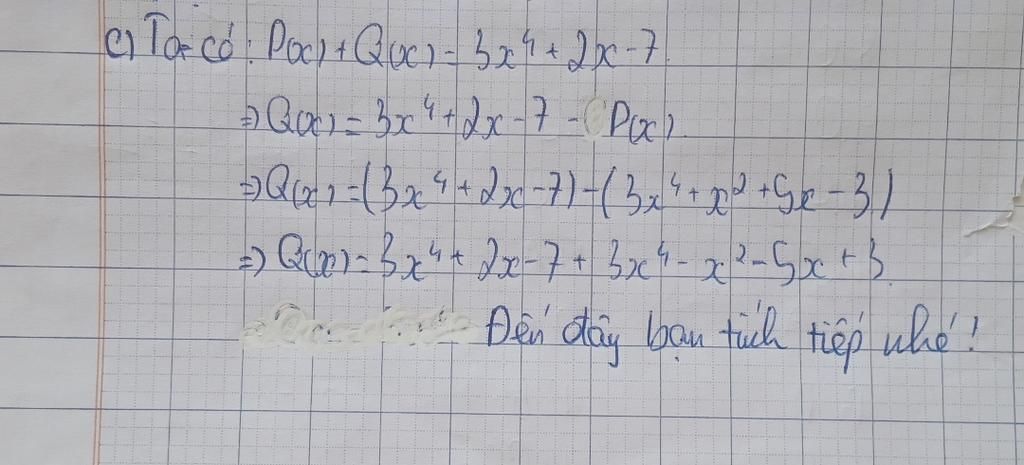 c) Ta có: P(x) + Q(x) = 3x⁴ + 2x - 7.
=> Q(x) = 3x⁴ + 2x - 7 - P(x).
=> Q(x) = (3x⁴ + 2x - 7) - (3x⁴ + x² + 5x - 3)
=> Q(x) = 3x⁴ + 2x - 7 + 3x⁴ - x² - 5x + 3.
Đến đây bạn tích tiếp nhé!